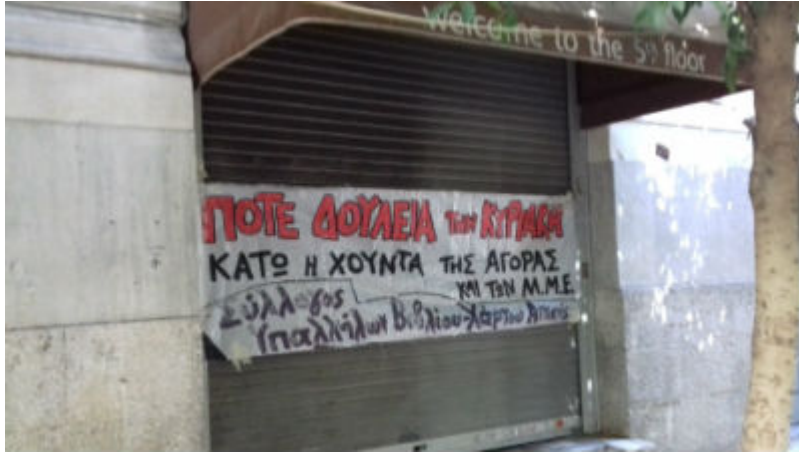 welcome to the 5th floor
ΠΟΤΕ ΔΟΥΛΕΙΑ ΤΗΝ ΚΥΡΙΑΚΗ
ΚΑΤΩ Η ΧΟΥΝΤΑ ΤΗΣ ΑΓΟΡΑΣ
ΚΑΙ ΤΩΝ Μ.Μ.Ε.
Σύλλογος
Υπαλλήλων Βιβλίου-Χάρτου Αττικής